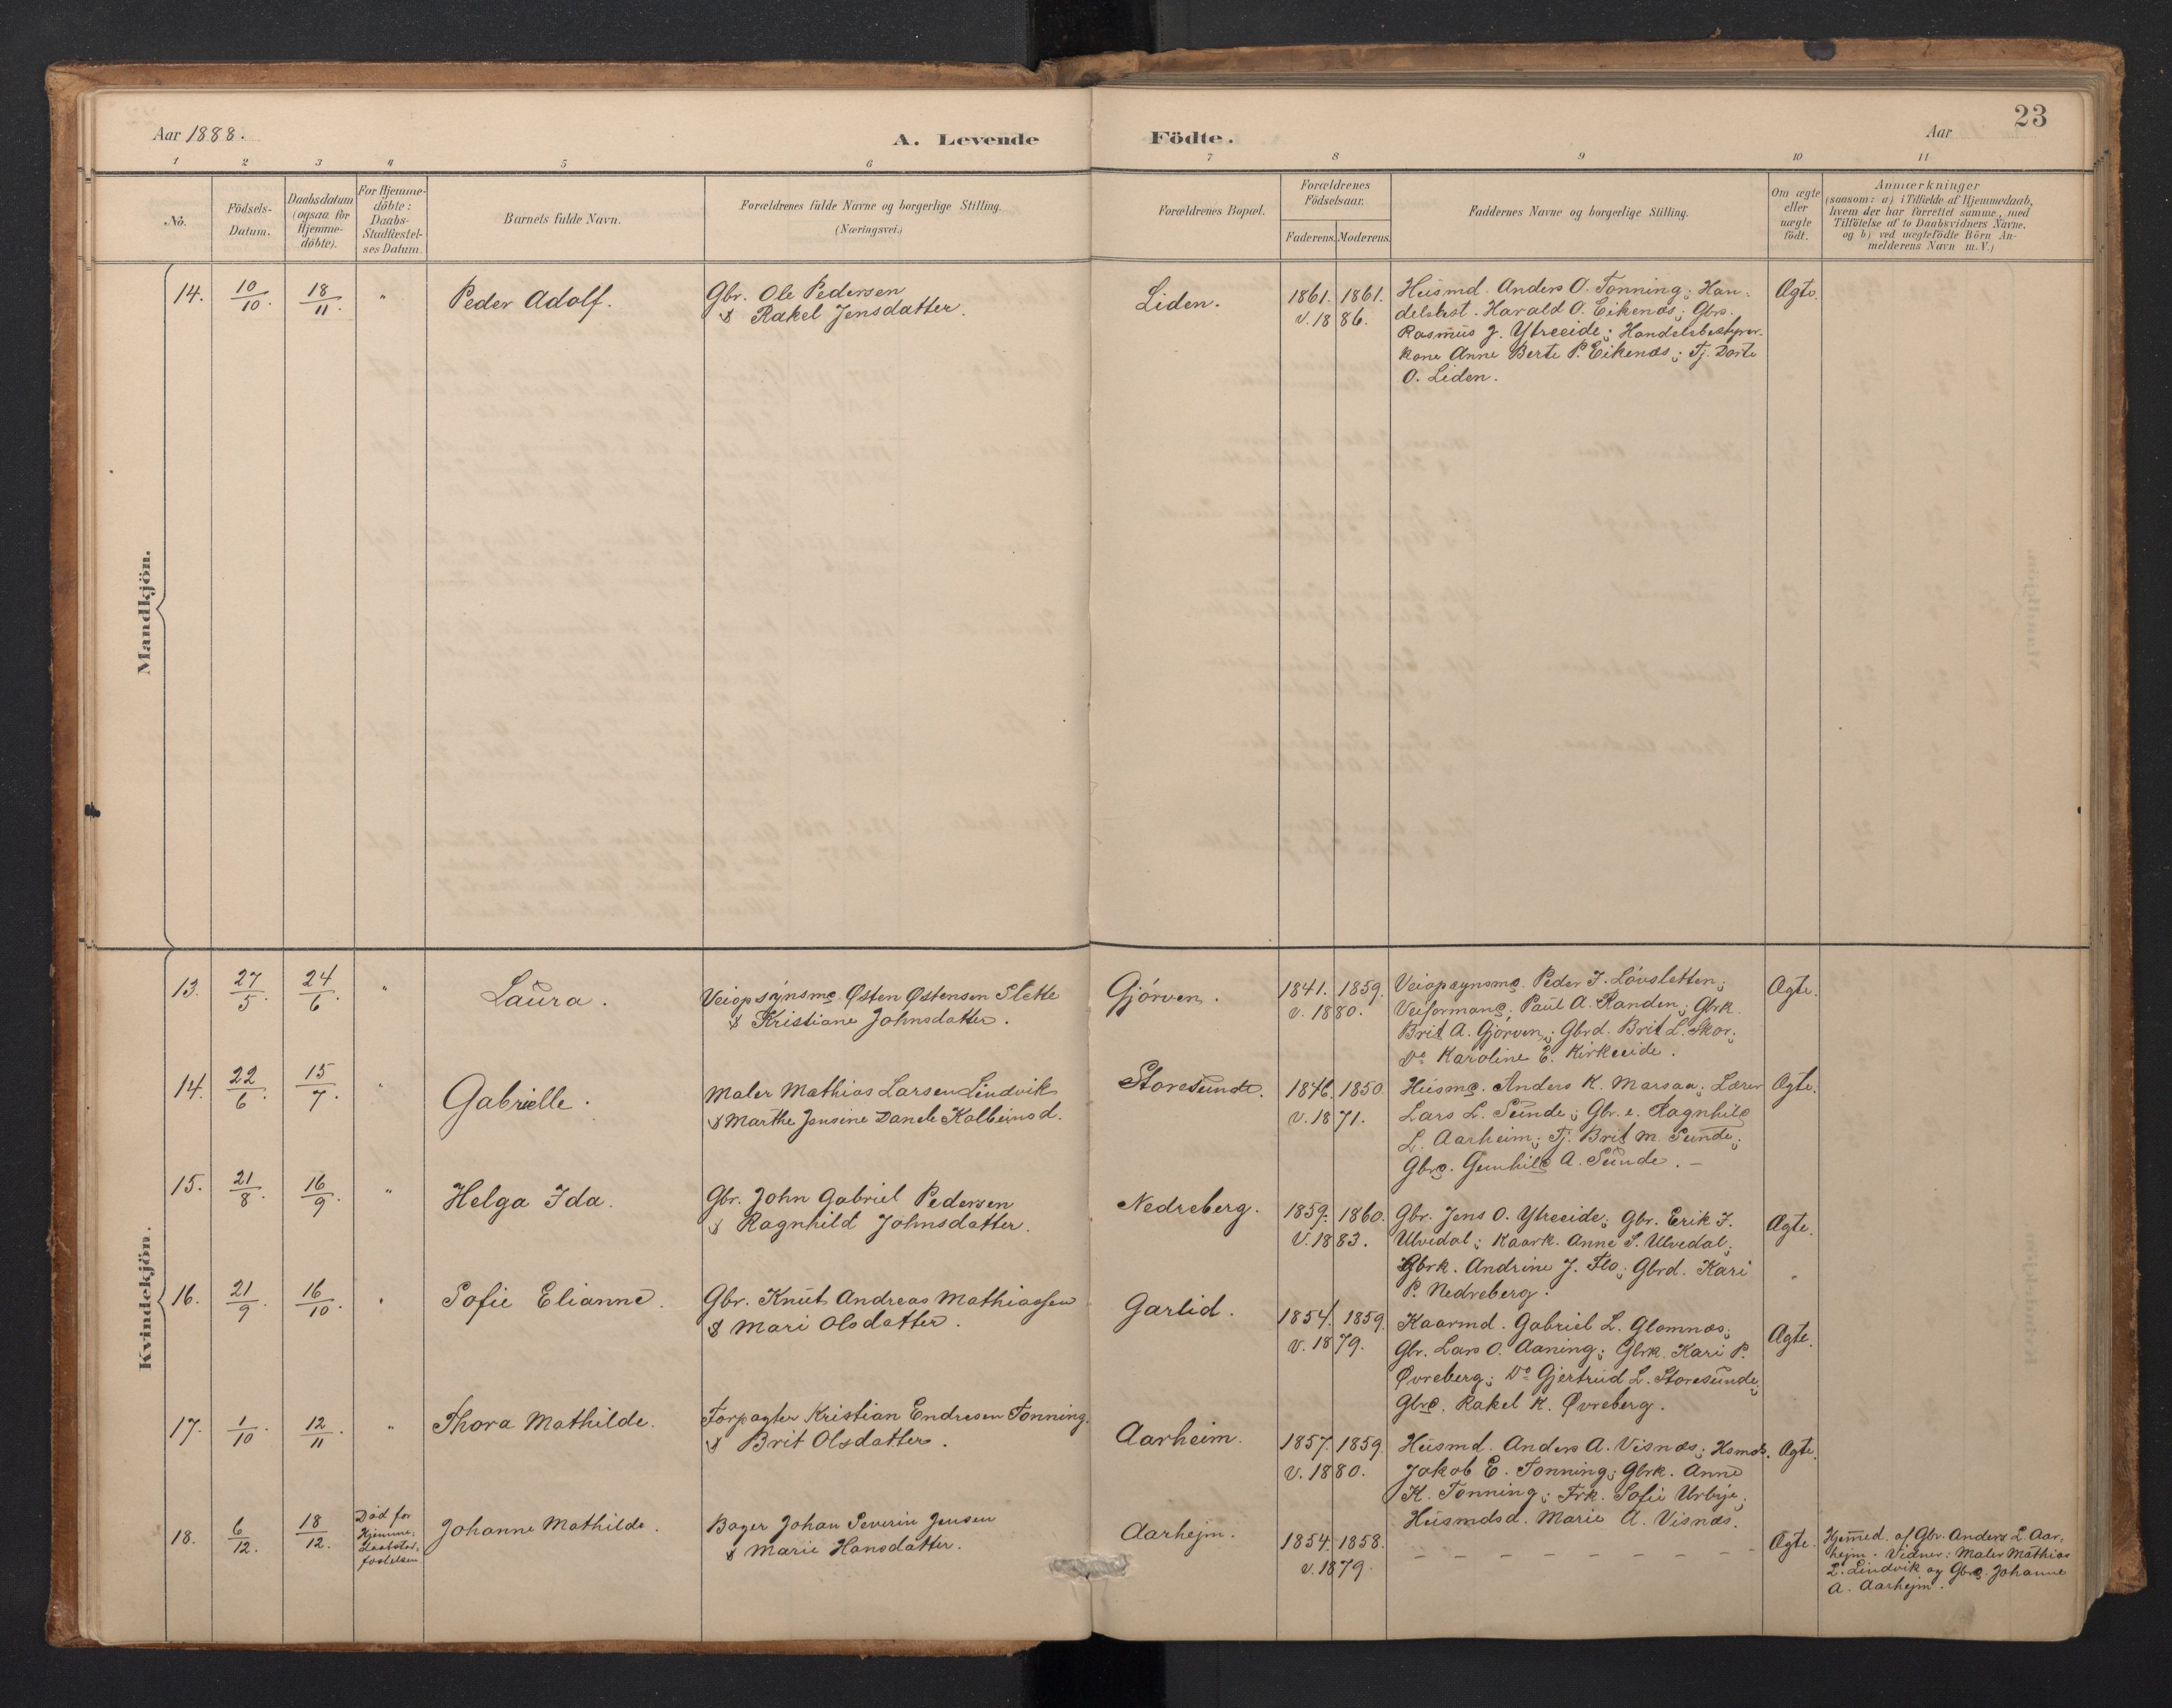 Aar 1888.
A. Levende
Födte.
Aar
23
1 2 3 4 5 6 7 8 9 10 11
No.
Födsels-
Datum.
Daabsdatum
(ogsaa for
Hjemme-
döbte).
For Hjemme-
döbte:
Daabs-
Stadfæstel-
ses Datum.
Barnets fulde Navn.
Forældrenes fulde Navne og borgerlige Stilling.
(Næringsvei.)
Forældrenes Bopæl.
Forældrenes
Födselsaar.
Faderens. Moderens.
Faddernes Navne og borgerlige Stilling.
Om ægte
eller
uægte
födt.
Anmærkninger
(saasom: a) i Tilfælde af Hjemmedaab,
hvem der har forrettet samme, med
Tilföielse af to Daabsvidners Navne.
og b) ved uægtefödte Börn An-
melderens Navn m. V.)
Mandkjön.
14. 10/10. 18/11. " Peder Adolf.
Gbr. Ole Pedersen
& Rakel Jensdatter.
Liden.
1861. 1861.
v. 1886.
Husmd. Anders O. Tonning; Han-
delsbst. Harald O. Eikenæs; Gbr.
Rasmus J. Ytreeide; Handelsbestyrer-
kone Anne Berte P. Eikenæs; Tj. Dorte
O. Liden.
Ægte.
Kvindekjön.
13. 27/5. 24/6. " Laura.
Veiopsynsmd. Østen Østensen Slette
& Kristiane Johnsdatter.
Gjörven.
1841. 1859.
v. 1880.
Veiopsynsmd. Peder J. Lövsletten;
Veiformand. Paul A. Randen; Gbrk.
Brit A. Gjörven; Gbrd. Brit L. Skor;
Do Karoline E. Kirkeeide.
Ægte.
14. 22/6. 15/7. " Gabrielle.
Maler Mathias Larsen Lindvik
& Marthe Jensine Danele Kolbeinsd.
Storesunde.
1846. 1850.
v. 1871.
Husmd. Anders K. Marsaa; Lærer
Lars L. Sunde; Gbr. e. Ragnhild
L. Aarheim; Tj. Brit M. Sunde;
Gbrd. Gunhild A. Sunde. –
Ægte.
15. 21/8. 16/9. " Helga Ida.
Gbr. John Gabriel Pedersen
& Ragnhild Johnsdatter.
Nedreberg.
1859. 1860.
v. 1883.
Gbr. Jens O. Ytreeide; Gbr. Erik J.
Ulvedal; Kaark. Anne S. Ulvedal;
Gbrk. Andrine J. Flo; Gbrd. Kari
P. Nedreberg.
Ægte.
16. 21/9. 16/10. " Sofie Elianne.
Gbr. Knut Andreas Mathiassen
& Mari Olsdatter.
Garlid.
1854. 1859.
v. 1879.
Kaarmd. Gabriel L. Glomnæs;
Gbr. Lars O. Aaning; Gbrk. Kari P.
Øvreberg; Do Gjertrud L. Storesunde;
Gbrd. Rakel K. Øvreberg.
Ægte.
17. 1/10. 12/11. " Thora Mathilde.
Forpagter Kristian Endresen Tonning.
& Brit Olsdatter.
Aarheim.
1857. 1859.
v. 1880.
Husmd. Anders A. Visnæs; Hsmds.
Jakob E. Tonning; Gbrk. Anne
K. Tonning; Frk. Sofie Urbye;
Husmdsd. Marie A. Visnæs.
Ægte.
18. 6/12. 18/12.
Död för
Hjemme-
daabstad-
fæstelsen
Johanne Mathilde.
Bager Johan Severin Jensen
& Marie Hansdatter.
Aarhejm.
1854. 1858.
v. 1879.
– – – – – – – – –
Ægte.
Hjemmed. af Gbr. Anders L. Aar-
hejm. Vidner: Maler Mathias
L. Lindvik og Gbrd. Johanne
A. Aarhejm.